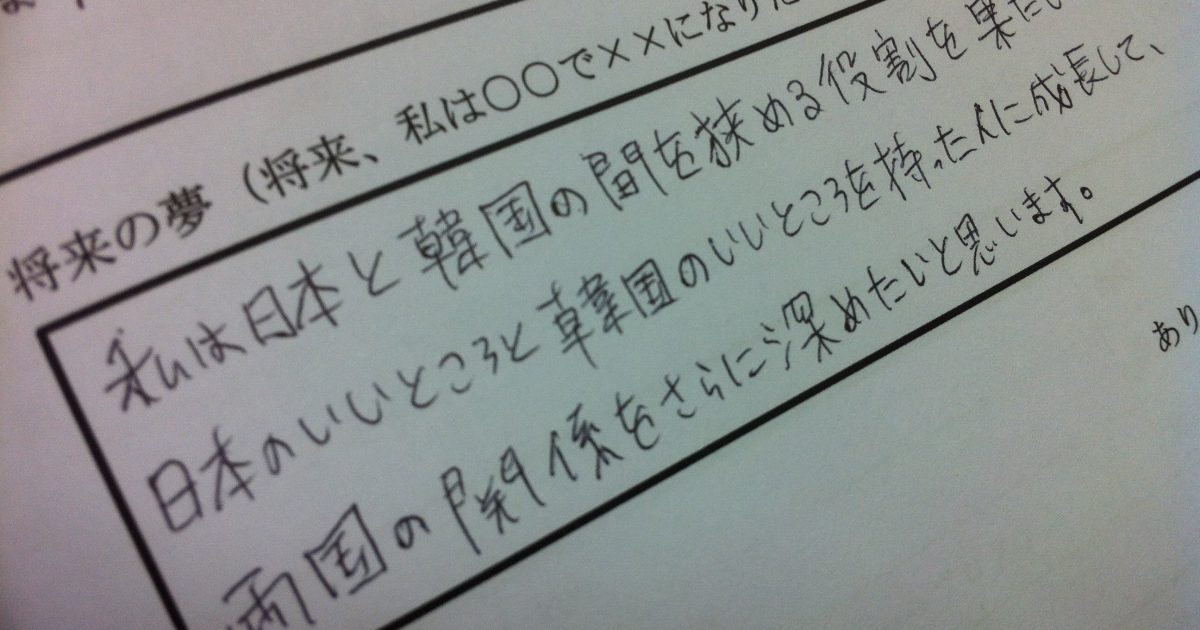 将来の夢（将来、私は〇〇で××になりた
私は日本と韓国の間を狭める役割を果たし
日本のいいところと韓国のいいところを持った人に成長して、
両国の関係をさらに深めたいと思います。
あり